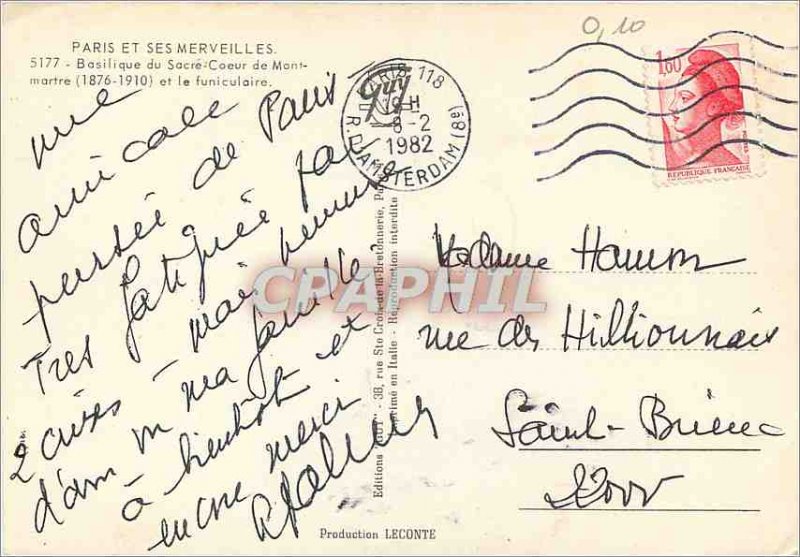 PARIS ET SES MERVEILLES.
5177 - Basilique du Sacré-Coeur de Mont-
martre (1876-1910) et le funiculaire.
une
amicale
pensée de Paris
Très fatiguée par
2 crises - mais heureuse
d'am ma famille
à bientôt et
encore merci
Editions "GUY" - 38, rue Ste Croix de la Bretonnerie, Pa
Imprimé en Italie - Reproduction interdite
Production LECONTE
PARIS 118
Guy
H
8-2
1982
R. D'AMSTERDAM (8e)
0,10
1,60
REPUBLIQUE FRANÇAISE
Madame Hamon
rue des Hillionnais
Saint-Brieuc
22000
CPAPHIL